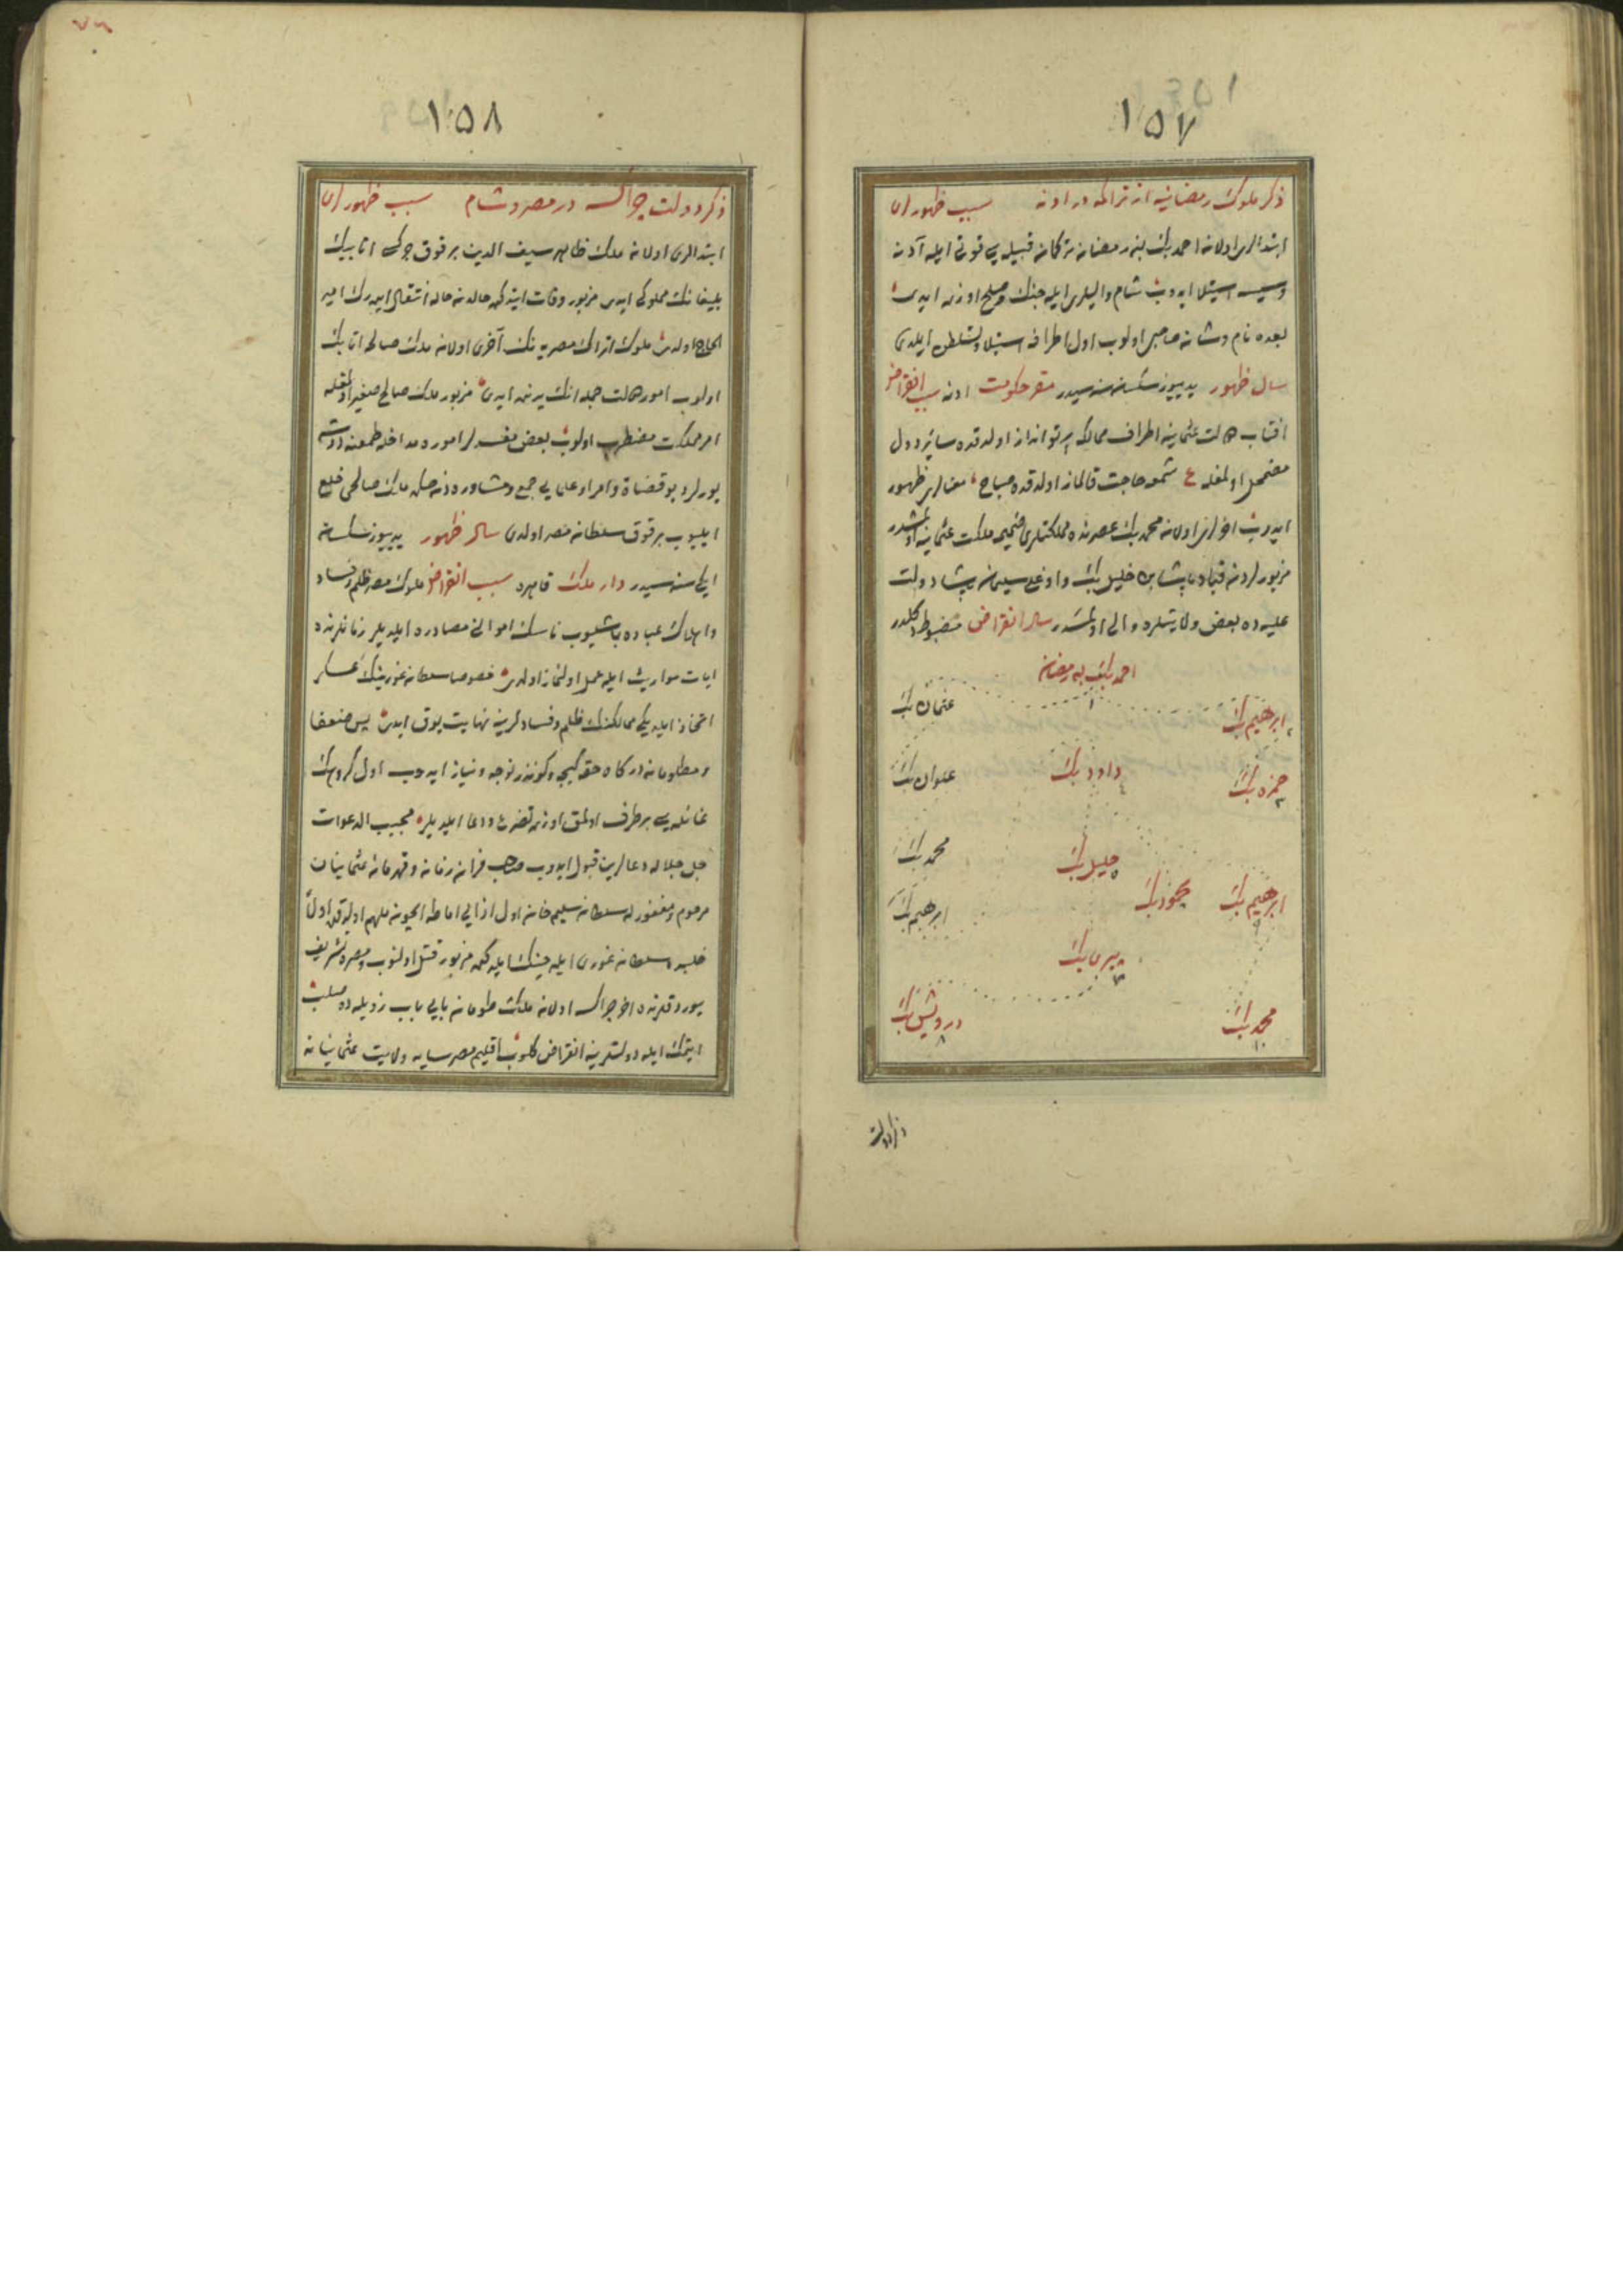 ١٥٧
ذكر ملوك رمضانيه از تراكمه در ادنه سبب ظهور ان
ابتدالری اولان احمد بك بن رمضان تركمان قبيله سی قوتی ايله آدنه
وسيس استيلا ايدوب شام واليلری ايله جنك وصلح اوزره ايدی
بعده نام وشانه صاحبی اولوب اول اطرافه استيلا وتسلطن ايلدی
سال ظهور يديوز سكسان سنه سيدر مقر حكومت ادنه سبب انقراض
افتاب دولت عثمانيه اطراف ممالكه پرتو انداز اولدقده سائر دول
مضمحل اولمغله ع شمعه حاجت قالماز اولدقده صباح معنالری ظهور
ايدوب اخرلری اولان محمد بك عصرنده مملكتلری ضميمه ملك عثمانيه اولمشدر
مزبورلردن قباد پاشا بن خليل بك واوغلی سليمان پاشا دولت
عليه ده بعض ولايتلره والی اولمشدر سال انقراض مضبوط دكلدر
احمد بك بن رمضان
١
ابرهيم بك
٢
عثمان بك
حمزه بك
٣
داود بك
٤
علوان بك
خليل بك
٥
محمد بك
ابرهيم بك
٩
محمود بك
ابرهيم بك
پيری بك
٧
محمد بك
١٠
درويش بك
٨
ذكر دولت
١٥٨
ذكر دولت چراكسه در مصر وشام سبب ظهور ان
ابتدالری اولان ملك ظاهر سيف الدين برقوق چركسی اتابيك
يلبغانك مملوكی ايدی مزبور وفات ايتدكده حالدن حاله انتقال ايدرك امير
الحاج اولدی ملوك اتراك مصريه نك آخری اولان ملك صالحه اتابك
اولوب امور دولت جمله انك يدنده ايدی مزبور ملك صالح صغير اولمغله
امر مملكت مضطرب اولوب بعض مفسدلر اموره مداخله طمعنه دوشه
يورلر ديو قضاة وامرا وعلمایی جمع ومشاوره دنصكره ملك صالحی خلع
ايليوب برقوق سلطان مصر اولدی سال ظهور يديوز سكسان
ايكی سنه سيدر دار ملك قاهره سبب انقراض ملوك مصر ظلم وفساد
واهلاك عباده باشليوب ناسك اموالنی مصادره ايلديلر زمانلرنده
ايات مواريث ايله عمل اولنماز اولدی خصوصا سلطان غورينك عسكر
اتخاذ ايلديكی ممالكنك ظلم وفسادلرينه نهايت يوق ايدی پس ضعفا
ومظلومان درگاه حقه گيجه وكوندز توجه ونياز ايدوب اول گروهك
غائله سی برطرف اولمق اوزره تضرع ودعا ايلديلر مجيب الدعوات
جل جلاله دعالرين قبول ايدوب صاحب قران زمان وقهرمان عثمانيان
مرحوم ومغفور له سلطان سليم خان اول ازاله يه ملهم اولدقده اولا
حلبده سلطان غوری ايله جنك ايله كه مزبور قتل اولنوب ومصره تشريف
يوردقلرنده اخر چراكسه اولان ملك طومان بایی باب زويله ده صلب
ايتمك ايله دولتلرينه انقراض كلوب اقليم مصر سايه ولايت عثمانيانه